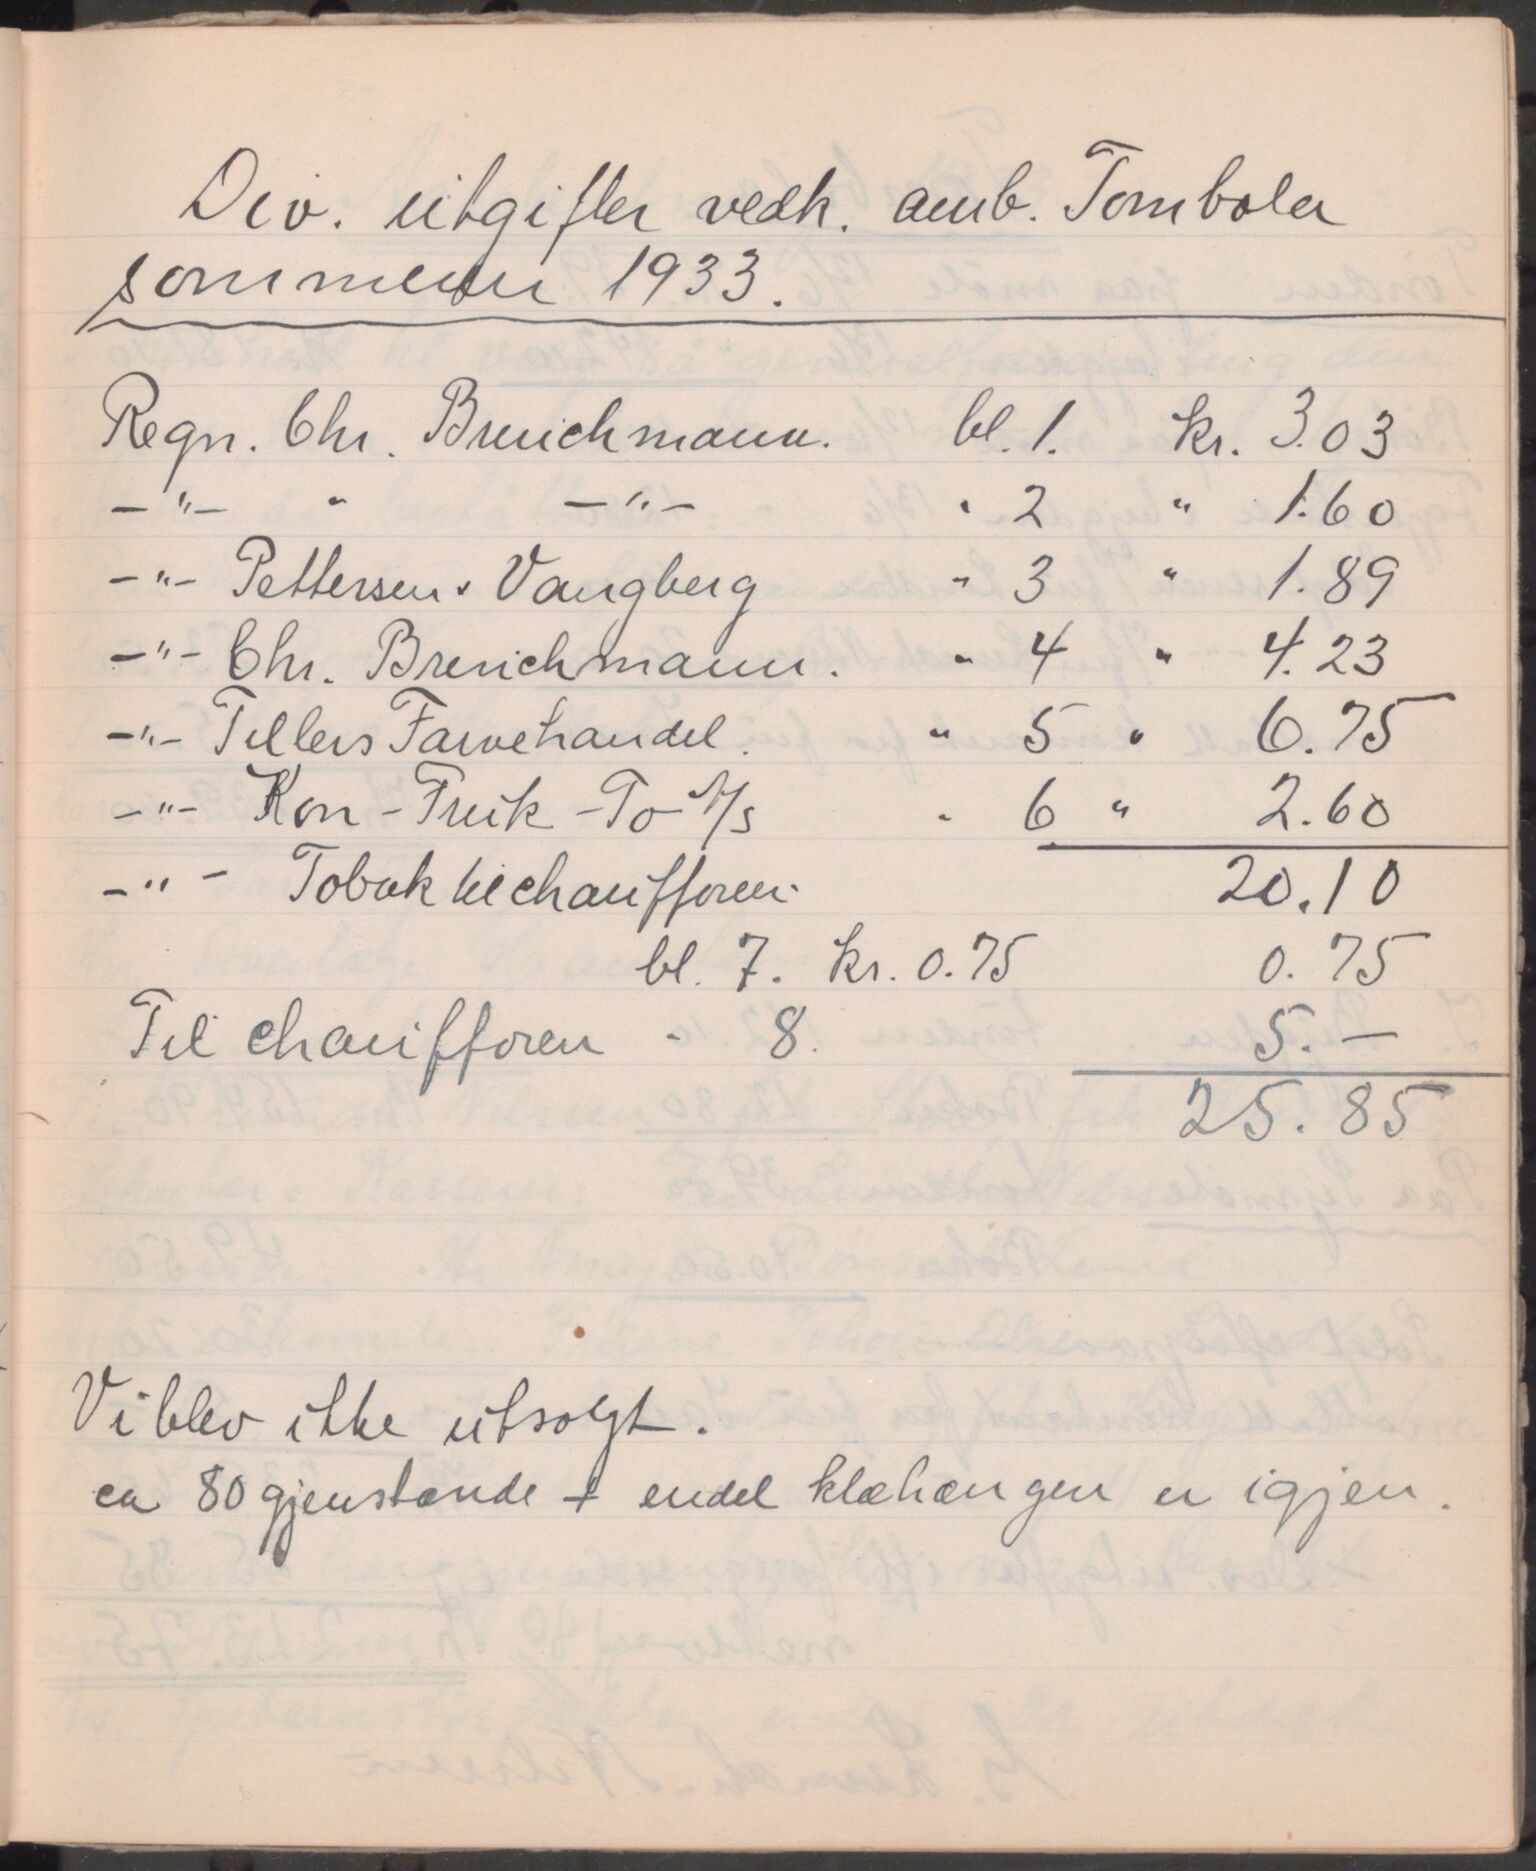 Div. utgifter vedk. amb. Tombola
sommeren 1933.
Regn. Chr. Breichmann. bl. 1. kr. 3.03
-"- " -"- " 2 " 1.60
-"- Pettersen & Vangberg " 3 " 1.89
-"- Chr. Breichmann. " 4 " 4.23
-"- Tillers Farvehandel. " 5 " 6.75
-"- Kon-Fruk-To A/S " 6 " 2.60
-"- Tobak til chaufføren 20.10
bl. 7. kr. 0.75 0.75
Til chaufføren " 8. 5.-
25.85
Vi blev ikke utsolgt.
ca 80 gjenstande + endel klæhængere er igjen.